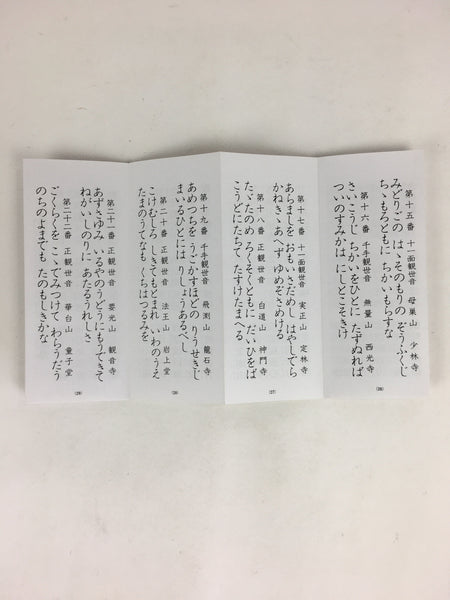 第十五番 十一面観世音 母巣山 少林寺
みどりごの はゝそのもりの ぞうふくじ
ちゝもろともに ちかいもらすな
第十六番 千手観世音 無量山 西光寺
さいこうじ ちかいをひとに たずぬれば
ついのすみかは にしとこそきけ
(26)
第十七番 十一面観世音 実正山 定林寺
あらましを おもいさだめし はやしでら
かねきゝあへず ゆめぞさめける
第十八番 正観世音 白道山 神門寺
たゞたのめ ろくそくともに だいひをば
こうどにたちて たすけたまへる
(27)
第十九番 千手観世音 飛渕山 龍石寺
あめつちを うごかすほどの りうせきじ
まいるひとには りしょうあるべし
第二十番 正観世音 法王山 岩上堂
こけむしろ しきてもとまれ いわのうえ
たまのうてなも くちはつるみを
(28)
第二十一番 正観世音 要光山 観音寺
あずさゆみ いるやのうどうにもうできて
ねがいしのりに あたるうれしさ
第二十二番 正観世音 華台山 童子堂
ごくらくを こゝでみつけて わらうだう
のちのよまでも たのもしきかな
(29)